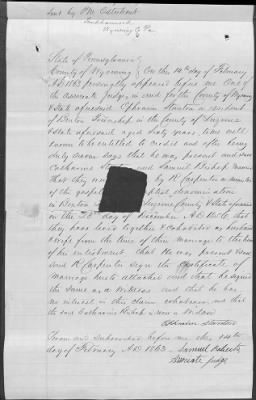 Sent by P.M. Osterhout
Tunkhannock
Wyoming Co Pa
State of Pennsylvania
County of Wyoming On the 14th day of February
A.D. 1863 personally appeared before me one of
the associate judges in and for the County of Wyoming
& State aforesaid Ephraim a resident
of Benton Township in the County of Luzerne
& State aforesaid aged sixty years, to me well
known to be entitled to credit and after being
duly sworn says that he was present and saw
Catharine and Samuel
that they by R Carpenter a minister
of the gospel of the Baptist denomination
in Benton Luzerne County & State aforesaid
on the day of December A.D. that
they have lived together & cohabited as husband
& wife from the time of their marriage to the time
of his enlistment that he was present & saw
said R Carpenter sign the Certificate of
Marriage hereto attached and that he signed
the same as a witness and that he has
no interest in this claim whatsoever and that
the said Catharine is now a widow
Ephraim
Sworn and Subscribed before me this 14th
day of February A.D. 1863. Samuel
Associate Judge